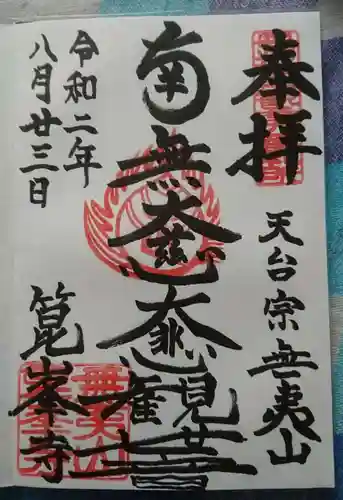 奉拝
天台宗 無夷山
南無大慈大悲觀世音
令和二年
八月廿三日
箟峯寺